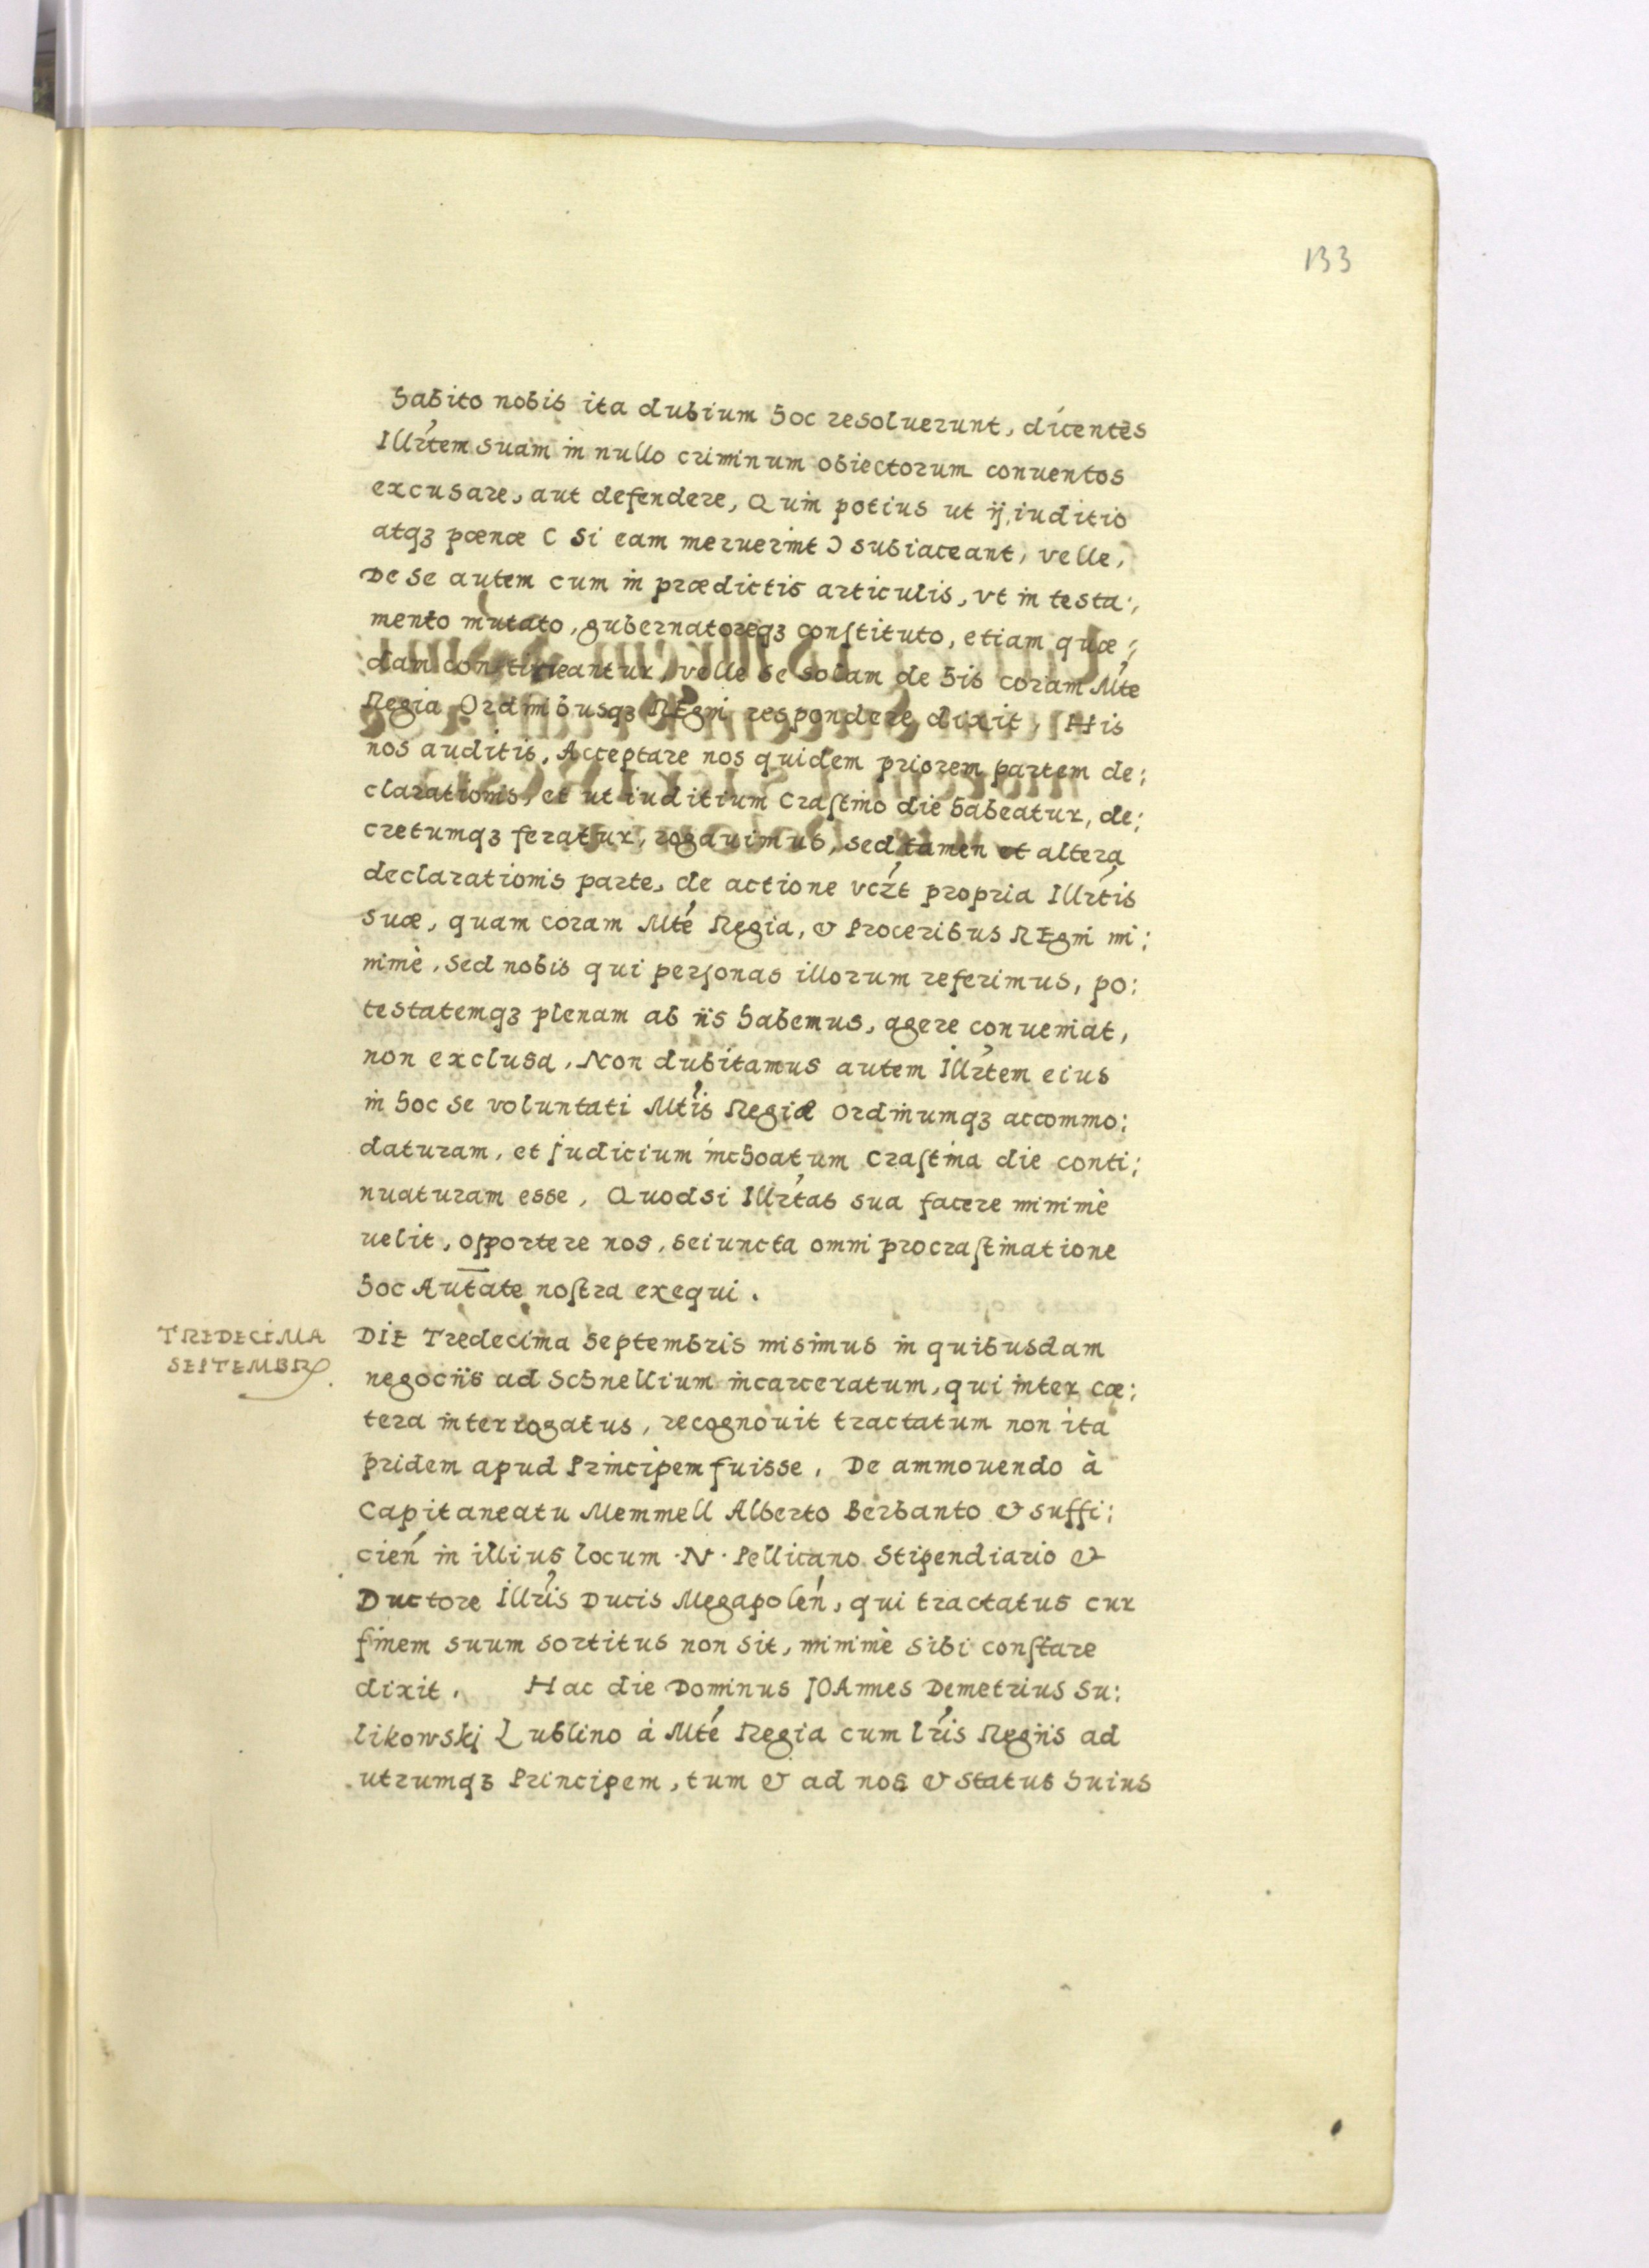 133
habito nobis ita dubium hoc resoluerunt, dicentes
Illrtem suam in nullo criminum obiectorum conuentos
excusare, aut defendere, Quin potius ut ij, iuditio
atqȝ pœnæ ( si eam meruerint ) subiaceant, velle,
De se autem cum in prædictis articulis, vt in testa:
mento mutato, gubernatoreqȝ constituto, etiam quæ:
dam contineantur, velle se solam de his coram Mte
Regia Ordinibusqȝ REgni respondere dixit, His
nos auditis, Acceptare nos quidem priorem partem de:
clarationis, et ut iuditium Crastino die habeatur, de:
cretumqȝ feratur, rogauimus, sed tamen et altera
declarationis parte, de actione vczt propria Illrtis
suæ, quam coram Mte Regia, & Proceribus REgni mi:
nimè, sed nobis qui personas illorum referimus, po:
testatemqȝ plenam ab iis habemus, agere conueniat,
non exclusa, Non dubitamus autem Illrtem eius
in hoc se voluntati Mtis Regiæ Ordinumqȝ accommo:
daturam, et judicium inchoatum Crastina die conti:
nuaturam esse, Quodsi Illrtas sua facere minimè
uelit, oportere nos, seiuncta omni procrastinatione
hoc Autate nostra exequi.
TREDECIMA
SEPTEMBR.
DIE Tredecima Septembris misimus in quibusdam
negociis ad Schnellium incarceratum, qui inter cæ:
tera interrogatus, recognouit tractatum non ita
pridem apud Principem fuisse, De ammouendo à
Capitaneatu Memmell Alberto Berbanto & suffi:
cien in illius locum ·N· Pellicano Stipendiario &
Ductore Illris Ducis Megapolen, qui tractatus cur
finem suum sortitus non sit, minimè sibi constare
dixit. Hac die Dominus JOAnnes Demetrius Su:
likowskj Lublino à Mte Regia cum lris Regiis ad
utrumqȝ Principem, tum & ad nos & status huius